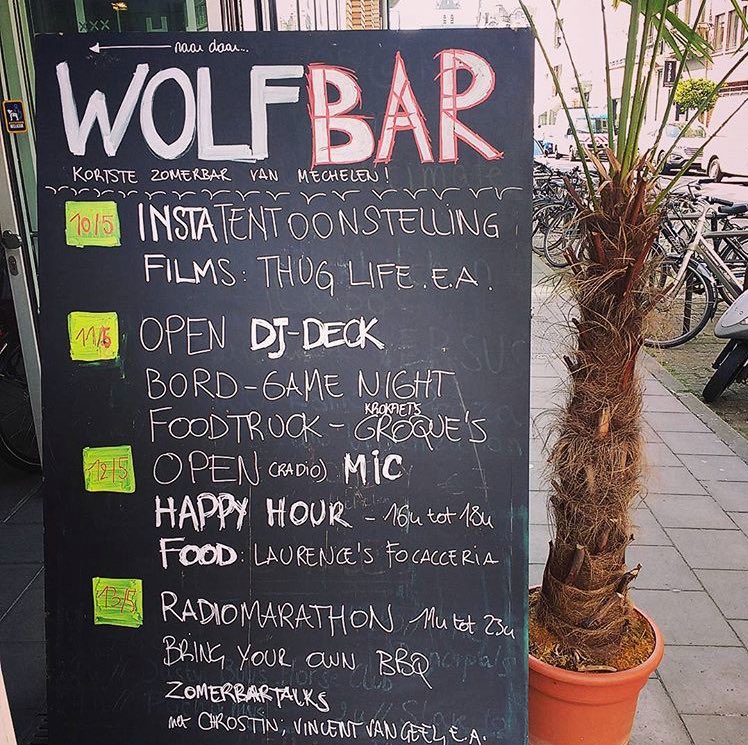 naar daar...
WOLFBAR
KORTSTE ZOMERBAR VAN MECHELEN!
10/5 INSTATENTOONSTELLING
FILMS: THUG LIFE. E.A.
11/5 OPEN DJ-DECK
BORD-GAME NIGHT
KROKFIETS
FOODTRUCK - CROQUE'S
12/5 OPEN (RADIO) MIC
HAPPY HOUR - 16u tot 18u
FOOD: LAURENCE'S FOCACCERIA
13/5 RADIOMARATHON 11u tot 23u
BRING YOUR OWN BBQ
ZOMERBARTALKS
met CHROSTIN, VINCENT VAN GEEL, E.A.